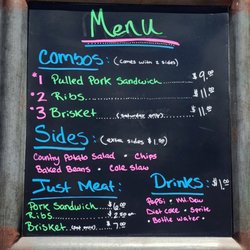 Menu
Combos: (comes with 2 sides)
#1 Pulled Pork Sandwich..... $9.00
#2 Ribs..... $11.00
#3 Brisket (Saturday only) $11.00
Sides: (extra sides $1.00)
Country Potato Salad • Chips
Baked Beans • Cole Slaw
Just Meat:
Pork Sandwich..... $6.00
Ribs..... $2.50
Brisket..... $7.00
Drinks: $1.00
Pepsi • Mt. Dew
Diet Coke • Sprite
• Bottle Water •